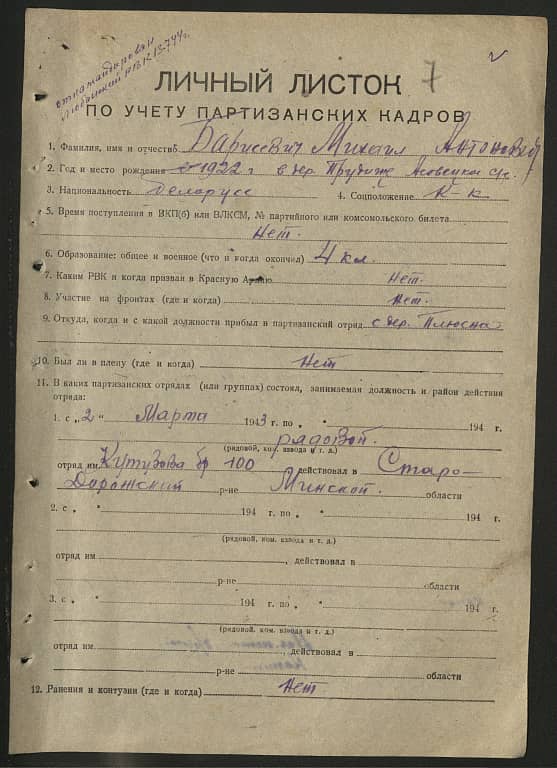 откомандирован
Любанский РВК 13-7-44 г.
7
ЛИЧНЫЙ ЛИСТОК
ПО УЧЕТУ ПАРТИЗАНСКИХ КАДРОВ
1. Фамилия, имя и отчество Барисевич Михаил Антонович
2. Год и место рождения 1922 г в дер. с/с.
3. Национальность Белорусс 4. Соцположение К-к
5. Время поступления в ВКП(б) или ВЛКСМ, № партийного или комсомольского билета
Нет.
6. Образование: общее и военное (что и когда окончил) 4 кл.
7. Каким РВК и когда призван в Красную Армию Нет.
8. Участие на фронтах (где и когда) Нет.
9. Откуда, когда и с какой должности прибыл в партизанский отряд с дер. Плюсна
10. Был ли в плену (где и когда) Нет
11. В каких партизанских отрядах (или группах) состоял, занимаемая должность и район действия
отряда:
1. с „2" Марта 1943 г. по „ " 194 г.
рядовой.
(рядовой, ком. взвода и т. д.)
отряд им. Кутузова бр 100 действовал в Старо-
Дорожский р-не Минской. области
2. с „ " 194 г. по „ " 194 г.
(рядовой, ком. взвода и т. д.)
отряд им. , действовал в
р-не области
3. с „ " 194 г. по „ " 194 г.
(рядовой, ком. взвода и т. д.)
отряд им. , действовал в
р-не области
12. Ранения и контузии (где и когда) Нет